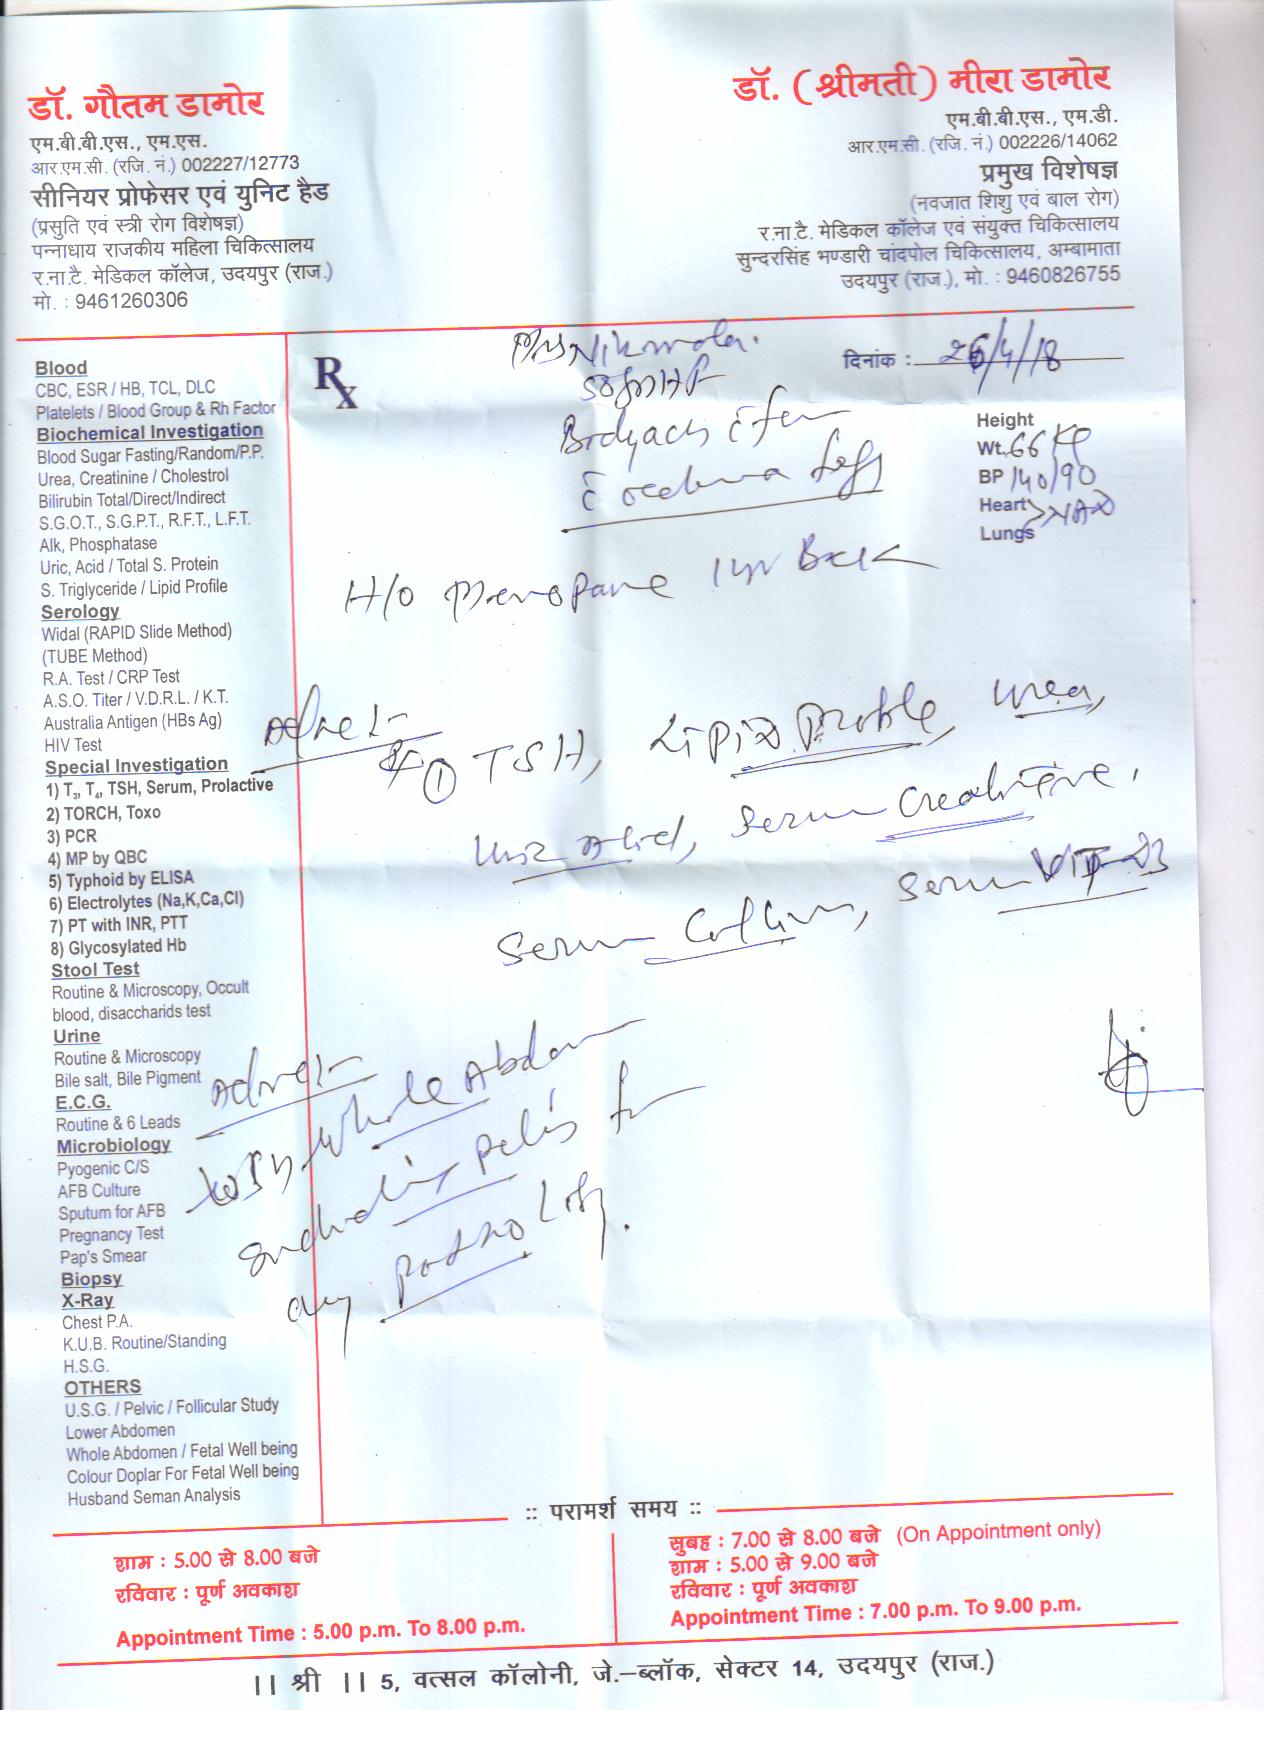 डॉ. गौतम डामोर
एम.बी.बी.एस., एम.एस.
आर.एम.सी. (रजि. नं.) 002227/12773
सीनियर प्रोफेसर एवं युनिट हैड
(प्रसुति एवं स्त्री रोग विशेषज्ञ)
पन्नाधाय राजकीय महिला चिकित्सालय
र.ना.टै. मेडिकल कॉलेज, उदयपुर (राज.)
मो. : 9461260306
डॉ. (श्रीमती) मीरा डामोर
एम.बी.बी.एस., एम.डी.
आर.एम.सी. (रजि. नं.) 002226/14062
प्रमुख विशेषज्ञ
(नवजात शिशु एवं बाल रोग)
र.ना.टै. मेडिकल कॉलेज एवं संयुक्त चिकित्सालय
सुन्दरसिंह भण्डारी चांदपोल चिकित्सालय, अम्बामाता
उदयपुर (राज.), मो. : 9460826755
Blood
CBC, ESR / HB, TCL, DLC
Platelets / Blood Group & Rh Factor
Biochemical Investigation
Blood Sugar Fasting/Random/P.P.
Urea, Creatinine / Cholestrol
Bilirubin Total/Direct/Indirect
S.G.O.T., S.G.P.T., R.F.T., L.F.T.
Alk, Phosphatase
Uric, Acid / Total S. Protein
S. Triglyceride / Lipid Profile
Serology
Widal (RAPID Slide Method)
(TUBE Method)
R.A. Test / CRP Test
A.S.O. Titer / V.D.R.L. / K.T.
Australia Antigen (HBs Ag)
HIV Test
Special Investigation
1) T₃, T₄, TSH, Serum, Prolactive
2) TORCH, Toxo
3) PCR
4) MP by QBC
5) Typhoid by ELISA
6) Electrolytes (Na,K,Ca,Cl)
7) PT with INR, PTT
8) Glycosylated Hb
Stool Test
Routine & Microscopy, Occult
blood, disaccharids test
Urine
Routine & Microscopy
Bile salt, Bile Pigment
E.C.G.
Routine & 6 Leads
Microbiology
Pyogenic C/S
AFB Culture
Sputum for AFB
Pregnancy Test
Pap's Smear
Biopsy
X-Ray
Chest P.A.
K.U.B. Routine/Standing
H.S.G.
OTHERS
U.S.G. / Pelvic / Follicular Study
Lower Abdomen
Whole Abdomen / Fetal Well being
Colour Doplar For Fetal Well being
Husband Seman Analysis
Rx
दिनांक : 26/4/18
Height
Wt. 66 Kg
BP 140/90
Heart > NAD
Lungs
H/O Menopause 1 yr Back
① TSH, Lipid Profile, urea,
Uric Acid, Serum Creatinine,
Serum Calcium, Serum VIT-D3
Adv:-
USG Whole Abdomen
including Pelvis for
any Pathology.
:: परामर्श समय ::
शाम : 5.00 से 8.00 बजे
रविवार : पूर्ण अवकाश
Appointment Time : 5.00 p.m. To 8.00 p.m.
सुबह : 7.00 से 8.00 बजे (On Appointment only)
शाम : 5.00 से 9.00 बजे
रविवार : पूर्ण अवकाश
Appointment Time : 7.00 p.m. To 9.00 p.m.
|| श्री || 5, वत्सल कॉलोनी, जे.-ब्लॉक, सेक्टर 14, उदयपुर (राज.)